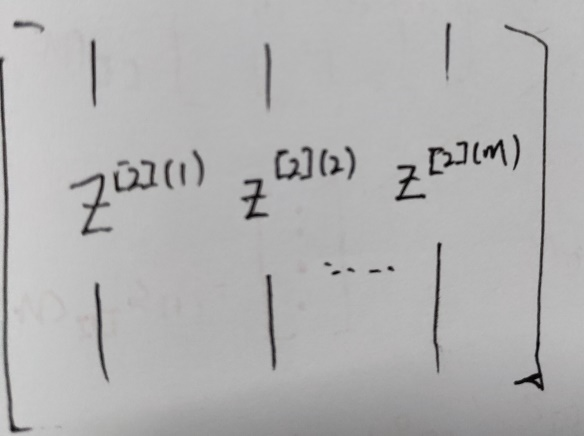 Z^[2](1) Z^[2](2) ..... Z^[2](m)